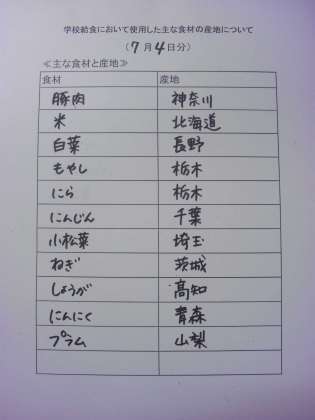 学校給食において使用した主な食材の産地について
(7月4日分)
≪主な食材と産地≫
食材 産地
豚肉 神奈川
米 北海道
白菜 長野
もやし 栃木
にら 栃木
にんじん 千葉
小松菜 埼玉
ねぎ 茨城
しょうが 高知
にんにく 青森
プラム 山梨